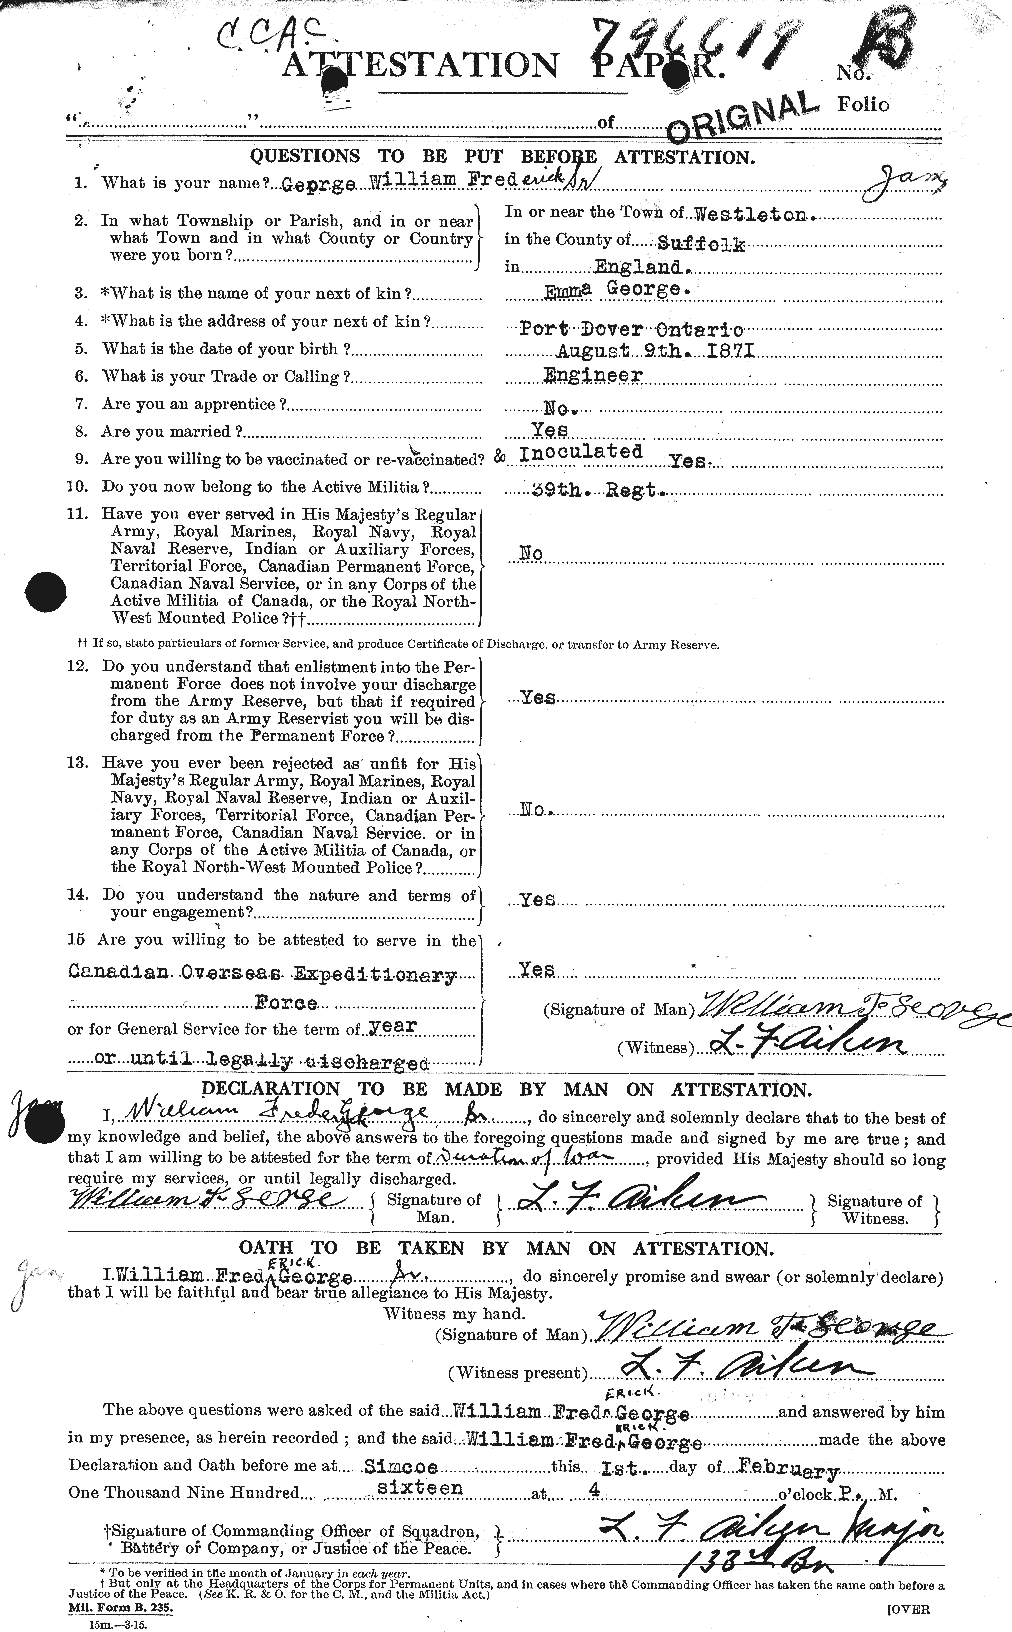 C.C.A.C.
796619
B
ATTESTATION PAPER.
No.
Folio
ORIGNAL
" " of
QUESTIONS TO BE PUT BEFORE ATTESTATION.
1. What is your name? George William Frederick Sr
2. In what Township or Parish, and in or near what Town and in what County or Country were you born?
In or near the Town of Westleton.
in the County of Suffolk
in England.
3. *What is the name of your next of kin? Emma George.
4. *What is the address of your next of kin? Port Dover Ontario
5. What is the date of your birth? August 9th. 1871
6. What is your Trade or Calling? Engineer
7. Are you an apprentice? No.
8. Are you married? Yes
9. Are you willing to be vaccinated or re-vaccinated? & Inoculated Yes.
10. Do you now belong to the Active Militia? 39th. Regt.
11. Have you ever served in His Majesty's Regular
Army, Royal Marines, Royal Navy, Royal
Naval Reserve, Indian or Auxiliary Forces,
Territorial Force, Canadian Permanent Force, No
Canadian Naval Service, or in any Corps of the
Active Militia of Canada, or the Royal North-
West Mounted Police?††
†† If so, state particulars of former Service, and produce Certificate of Discharge, or transfer to Army Reserve.
12. Do you understand that enlistment into the Per-
manent Force does not involve your discharge
from the Army Reserve, but that if required Yes
for duty as an Army Reservist you will be dis-
charged from the Permanent Force?
13. Have you ever been rejected as unfit for His
Majesty's Regular Army, Royal Marines, Royal
Navy, Royal Naval Reserve, Indian or Auxil-
iary Forces, Territorial Force, Canadian Per- No.
manent Force, Canadian Naval Service. or in
any Corps of the Active Militia of Canada, or
the Royal North-West Mounted Police?
14. Do you understand the nature and terms of
your engagement? Yes
15 Are you willing to be attested to serve in the
Canadian Overseas Expeditionary Yes
Force
(Signature of Man) William F George
or for General Service for the term of year
(Witness) L. F. Aiken
or until legally discharged
DECLARATION TO BE MADE BY MAN ON ATTESTATION.
I, William Freder George Sr., do sincerely and solemnly declare that to the best of
my knowledge and belief, the above answers to the foregoing questions made and signed by me are true; and
that I am willing to be attested for the term of Duration of War, provided His Majesty should so long
require my services, or until legally discharged.
William F George { Signature of Man. } { L. F. Aiken } { Signature of Witness. }
OATH TO BE TAKEN BY MAN ON ATTESTATION.
ERICK
I. William Fred George Sr., do sincerely promise and swear (or solemnly declare)
that I will be faithful and bear true allegiance to His Majesty.
Witness my hand.
(Signature of Man) William F George
(Witness present) L. F. Aiken
ERICK.
The above questions were asked of the said William Fred George and answered by him
ERICK.
in my presence, as herein recorded; and the said William Fred George made the above
Declaration and Oath before me at Simcoe this 1st. day of February
One Thousand Nine Hundred sixteen at 4 o'clock P. M.
†Signature of Commanding Officer of Squadron, L. F. Aiken Major
Battery or Company, or Justice of the Peace. 133rd Bn
* To be verified in the month of January in each year.
† But only at the Headquarters of the Corps for Permanent Units, and in cases where the Commanding Officer has taken the same oath before a
Justice of the Peace. (See K. R. & O. for the C. M., and the Militia Act.)
Mil. Form B. 235.
[OVER
15m.—3-15.